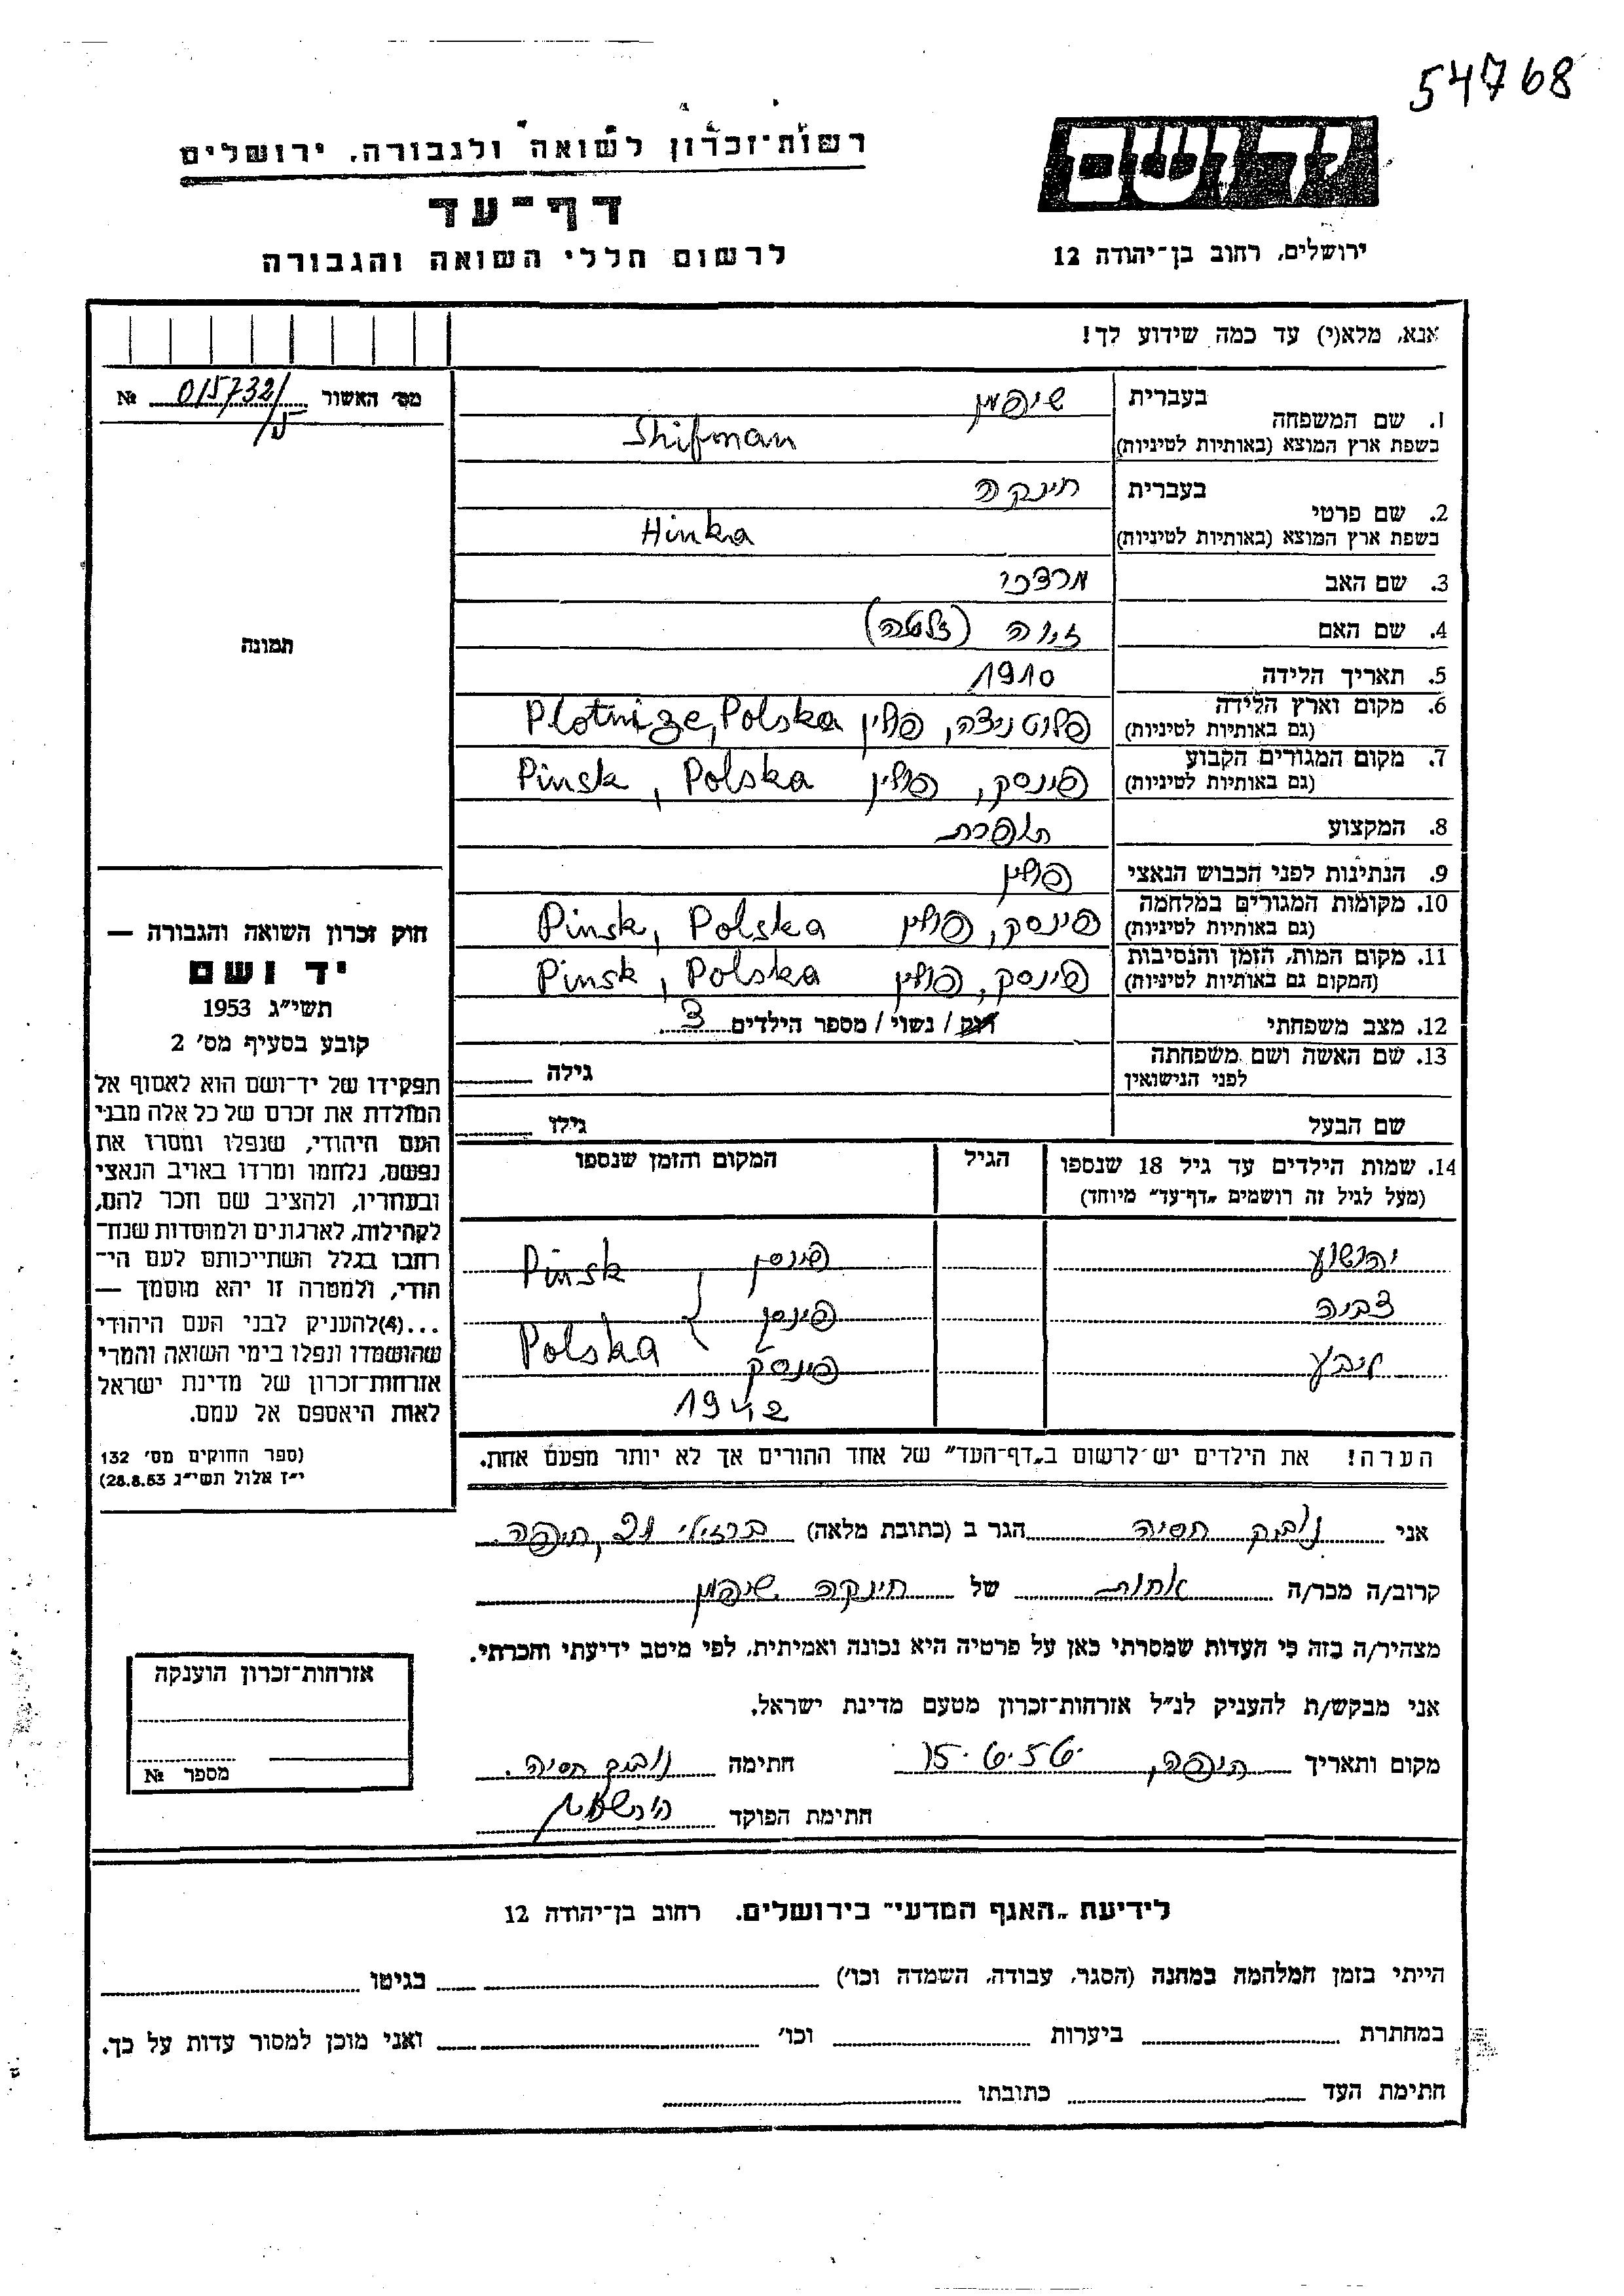 54768
יד ושם
רשות־זכרון לשואה ולגבורה, ירושלים
דף־עד
לרשום חללי השואה והגבורה
ירושלים, רחוב בן־יהודה 12
אנא, מלא(י) עד כמה שידוע לך!
מס׳ האשור 015732/ №
1. שם המשפחה
בעברית שיפמן
בשפת ארץ המוצא (באותיות לטיניות) Shifman
2. שם פרטי
בעברית חינקה
בשפת ארץ המוצא (באותיות לטיניות) Hinka
3. שם האב מרדכי
4. שם האם (זלטה)
תמונה
5. תאריך הלידה 1910
6. מקום וארץ הלידה
(גם באותיות לטיניות) פלוטניצה, פולין Plotnize, Polska
7. מקום המגורים הקבוע
(גם באותיות לטיניות) פינסק, פולין Pinsk, Polska
8. המקצוע תופרת
9. הנתינות לפני הכבוש הנאצי פולין
10. מקומות המגורים במלחמה
(גם באותיות לטיניות) פינסק, פולין Pinsk, Polska
11. מקום המות, הזמן והנסיבות
(המקום גם באותיות לטיניות) פינסק, פולין Pinsk, Polska
12. מצב משפחתי רוק / נשוי / מספר הילדים 3
13. שם האשה ושם משפחתה
לפני הנישואין גילה
שם הבעל גילו
14. שמות הילדים עד גיל 18 שנספו הגיל המקום והזמן שנספו
(מעל לגיל זה רושמים „דף־עד״ מיוחד)
יהושוע פינסק Pinsk
פינסק
פינסק Polska
1942
חוק זכרון השואה והגבורה —
יד ושם
תשי״ג 1953
קובע בסעיף מס׳ 2
תפקידו של יד־ושם הוא לאסוף אל
המולדת את זכרם של כל אלה מבני
העם היהודי, שנפלו ומסרו את
נפשם, נלחמו ומרדו באויב הנאצי
ובעוזריו, ולהציב שם וזכר להם,
לקהילות, לארגונים ולמוסדות שנח־
רחבו בגלל השתייכותם לעם הי־
הודי, ולמטרה זו יהא מוסמך —
...(4)להעניק לבני העם היהודי
שהושמדו ונפלו בימי השואה והמרי
אזרחות־זכרון של מדינת ישראל
לאות היאספם אל עמם.
(ספר החוקים מס׳ 132
י״ז אלול תשי״ג 28.8.53)
הערה! את הילדים יש לרשום ב„דף־העד״ של אחד ההורים אך לא יותר מפעם אחת.
אני נוביק חסיה הגר ב (כתובת מלאה) ברזילי 21, חיפה.
קרוב/ה מכר/ה אחות של חינקה שיפמן
מצהיר/ה בזה כי העדות שמסרתי כאן על פרטיה היא נכונה ואמיתית, לפי מיטב ידיעתי והכרתי.
אני מבקש/ת להעניק לנ״ל אזרחות־זכרון מטעם מדינת ישראל.
מקום ותאריך חיפה, 15.6.56. חתימה נוביק חסיה.
חתימת הפוקד
אזרחות־זכרון הוענקה
מספר №
לידיעת „האגף המדעי״ בירושלים. רחוב בן־יהודה 12
הייתי בזמן המלחמה במחנה (הסגר, עבודה, השמדה וכו׳) בגיטו
במחתרת ביערות וכו׳ ואני מוכן למסור עדות על כך.
חתימת העד כתובתו